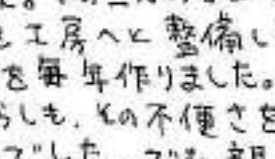 工房へと整備し
を毎年作りました。
らしも、その不便さを
でした。でも、親